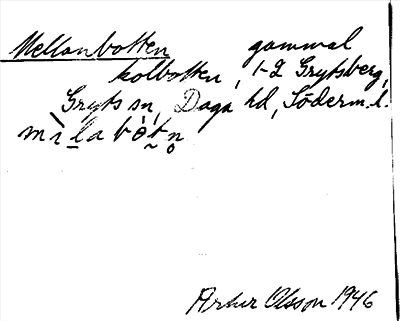 Mellanbotten gammal
kolbotten, 1-2 Grytsberg,
Gryts sn, Daga hd, Söderm. l.
Artur Olsson 1946